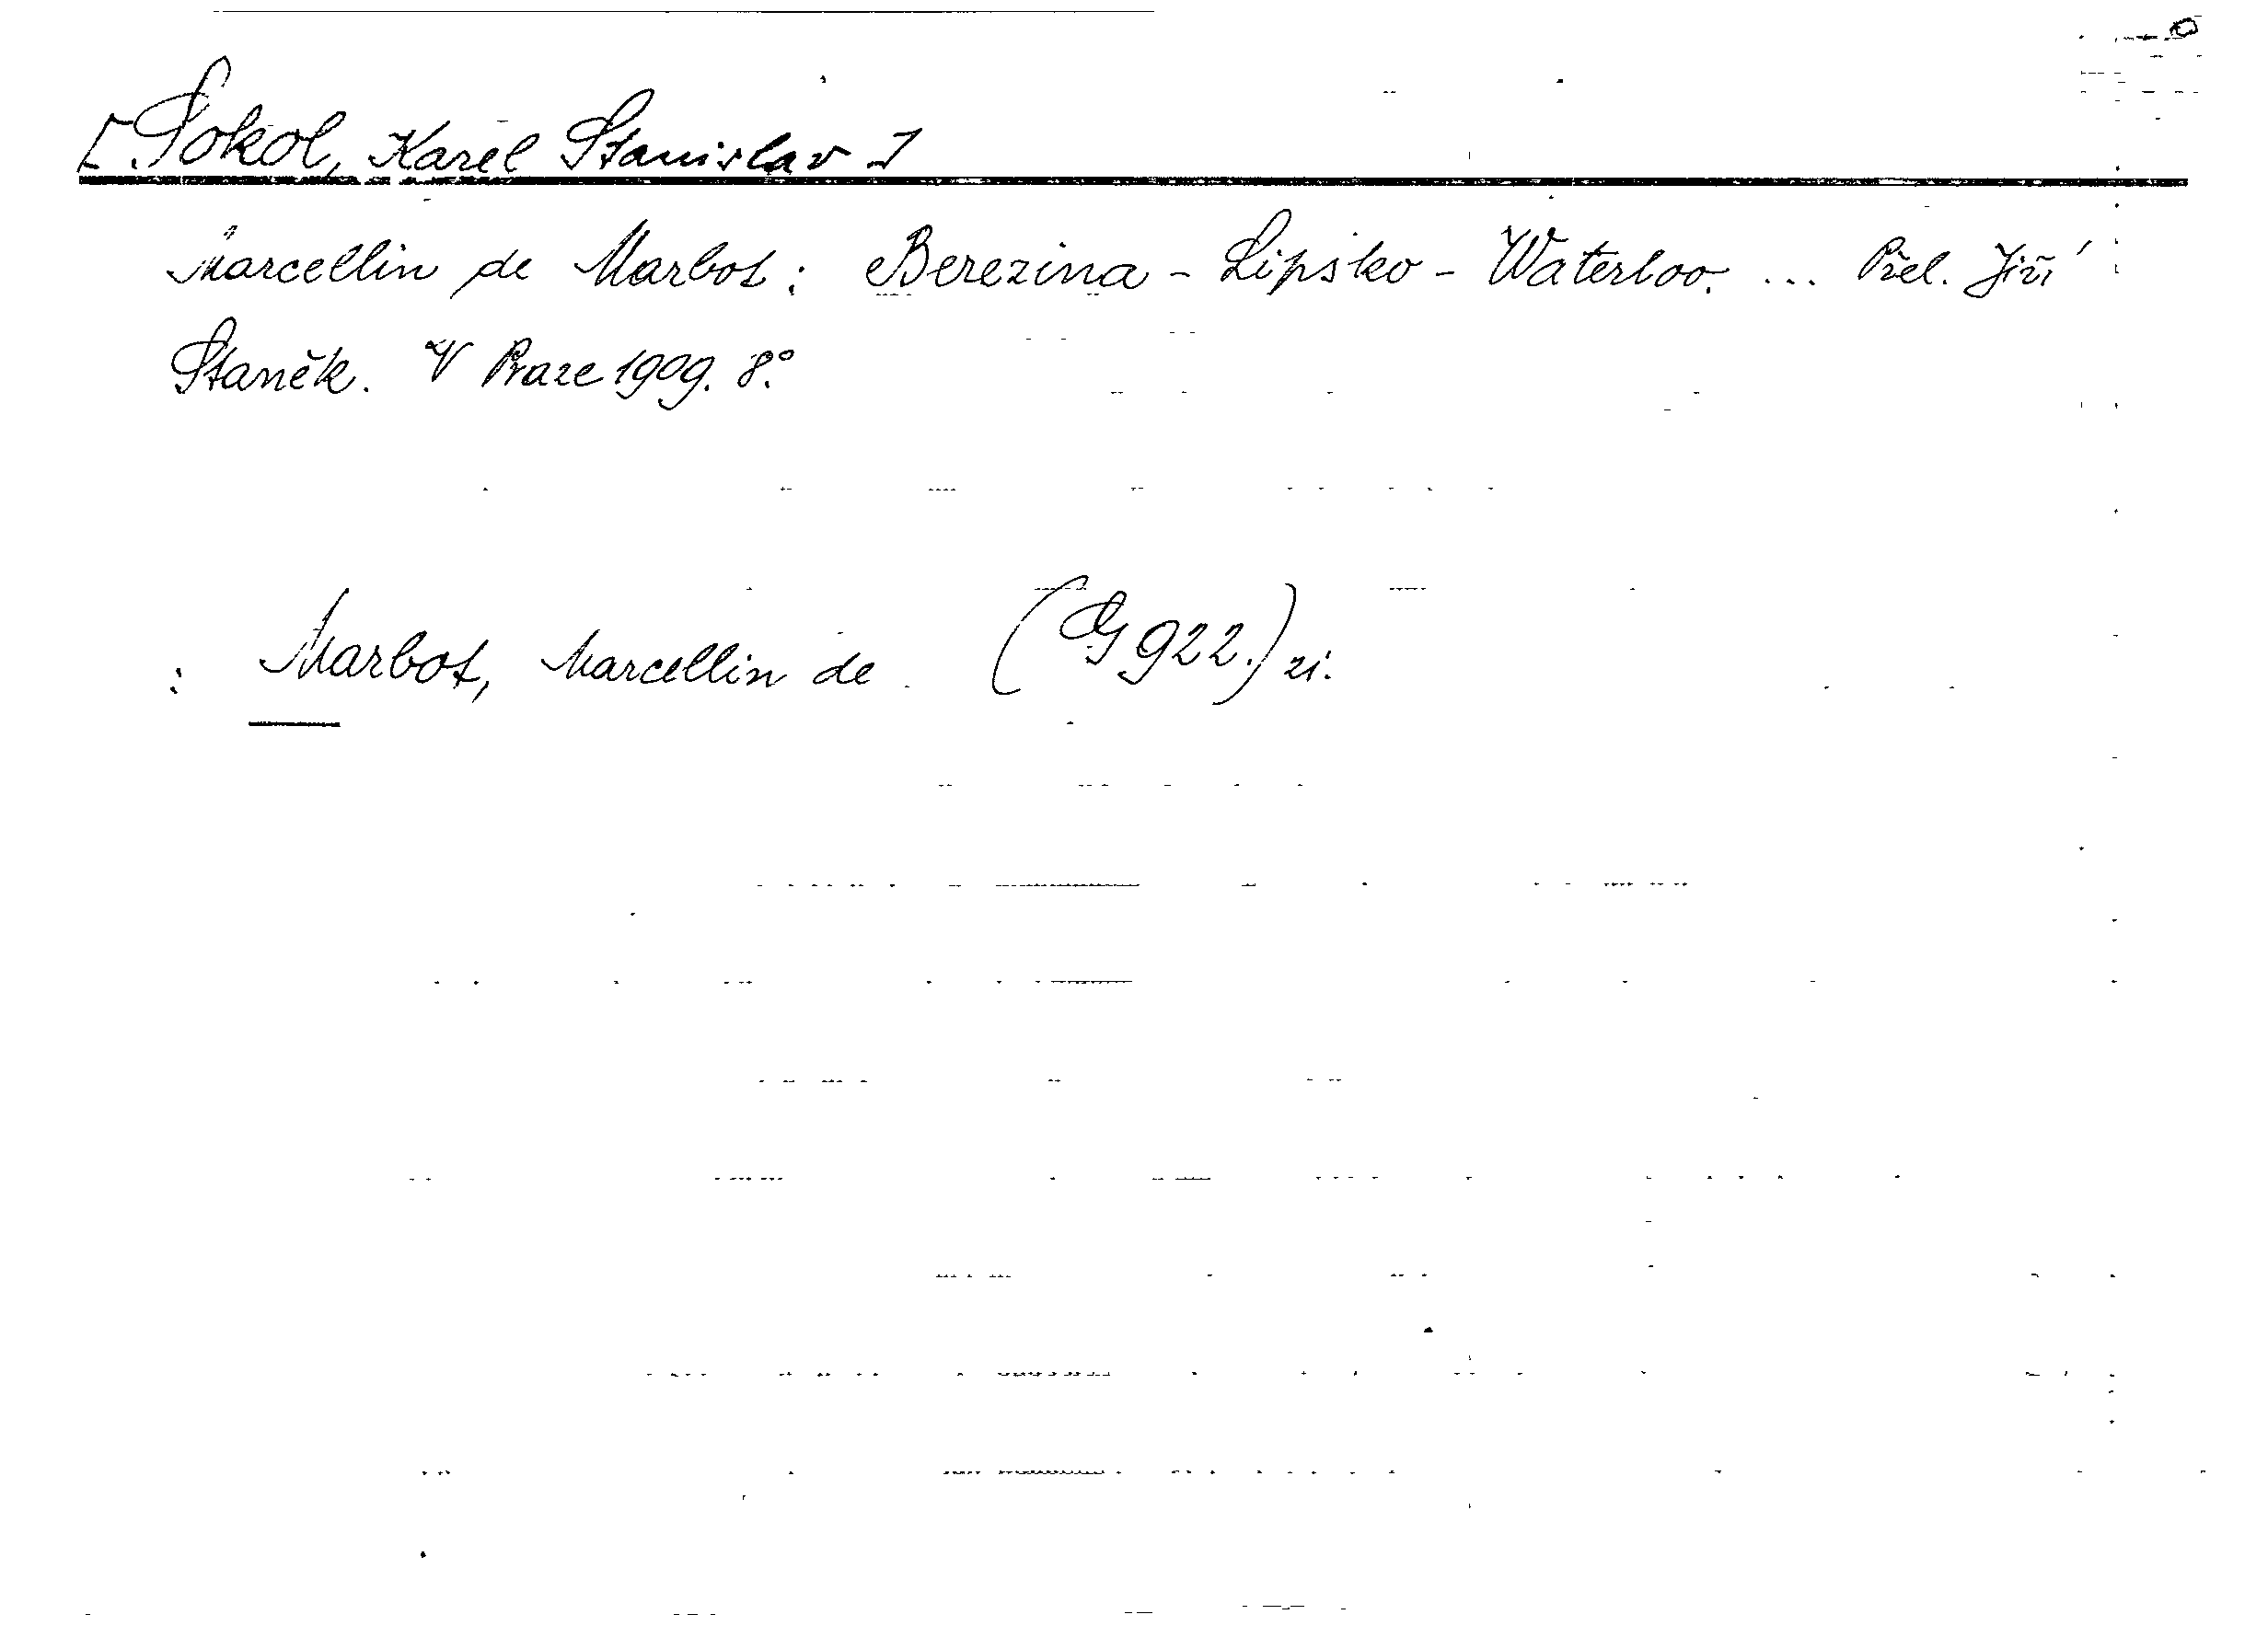 [Sokol, Karel Stanislav]
Marcellin de Marbot: Berezina - Lipsko - Waterloo. ... Přel. Jiří
Staněk. V Praze 1909. 8.°
: Marbot, Marcellin de (G 922.) zi.